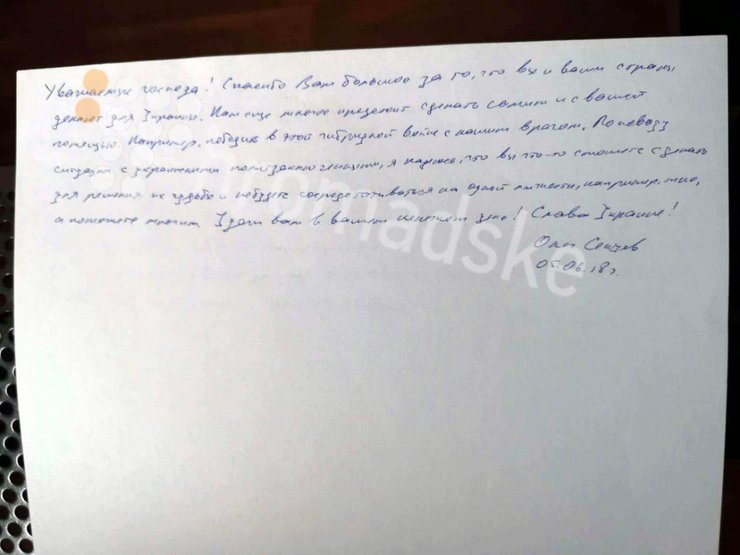 Уважаемые господа! Спасибо Вам большое за то, что вы и ваши страны
делают для Украины. Нам еще многое предстоит сделать самим и с вашей
помощью. Например, победить в этой гибридной войне с нашим врагом. По поводу
ситуации с украинскими политзаключенными, я надеюсь, что вы что-то сможете сделать
для решения их судьбы и не будете сосредотачиваться на одной личности, например, мне,
а поможете многим. Удачи вам в вашем нелегком деле! Слава Украине!
Олег Сенцов
05.06.18 г.
hromadske